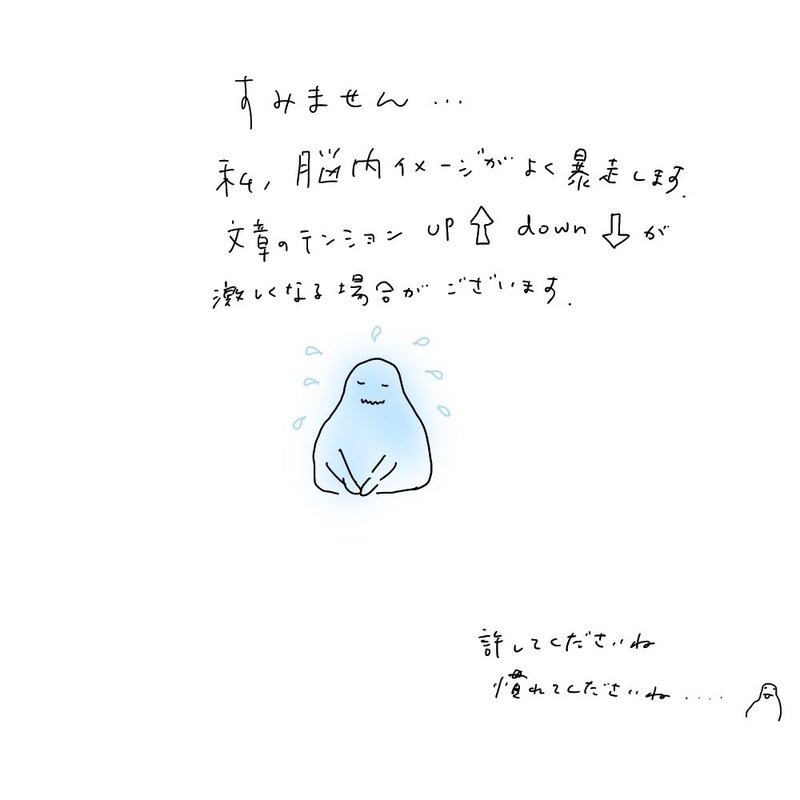 すみません…
私, 脳内イメージがよく暴走します.
文章のテンション up⇧ down⇩が
激しくなる場合がございます.
許してくださいね
慣れてくださいね....